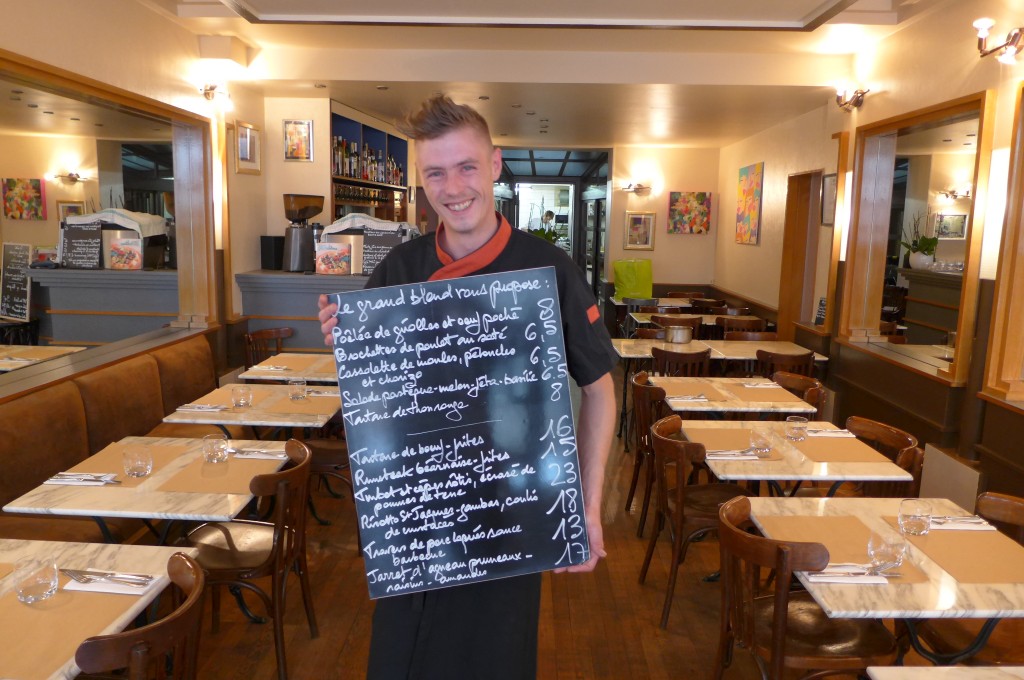 Le grand blond vous propose :
Poêlée de girolles et oeuf poché 8
Brochettes de poulet au saté 6,5
Cassolette de moules, pétoncles
et chorizo 6,5
Salade pastèque-melon-féta- 6.5
Tartare de thon rouge 8
Tartare de boeuf-frites 16
Rumsteak béarnaise-frites 15
Turbot et cèpes rôtis, écrasé de
pommes de terre 23
Risotto St-Jacques-gambas, coulis
de crustacés 18
Travers de porc laqués sauce
barbecue 13
Jarret d'agneau pruneaux-
raisins-amandes 17